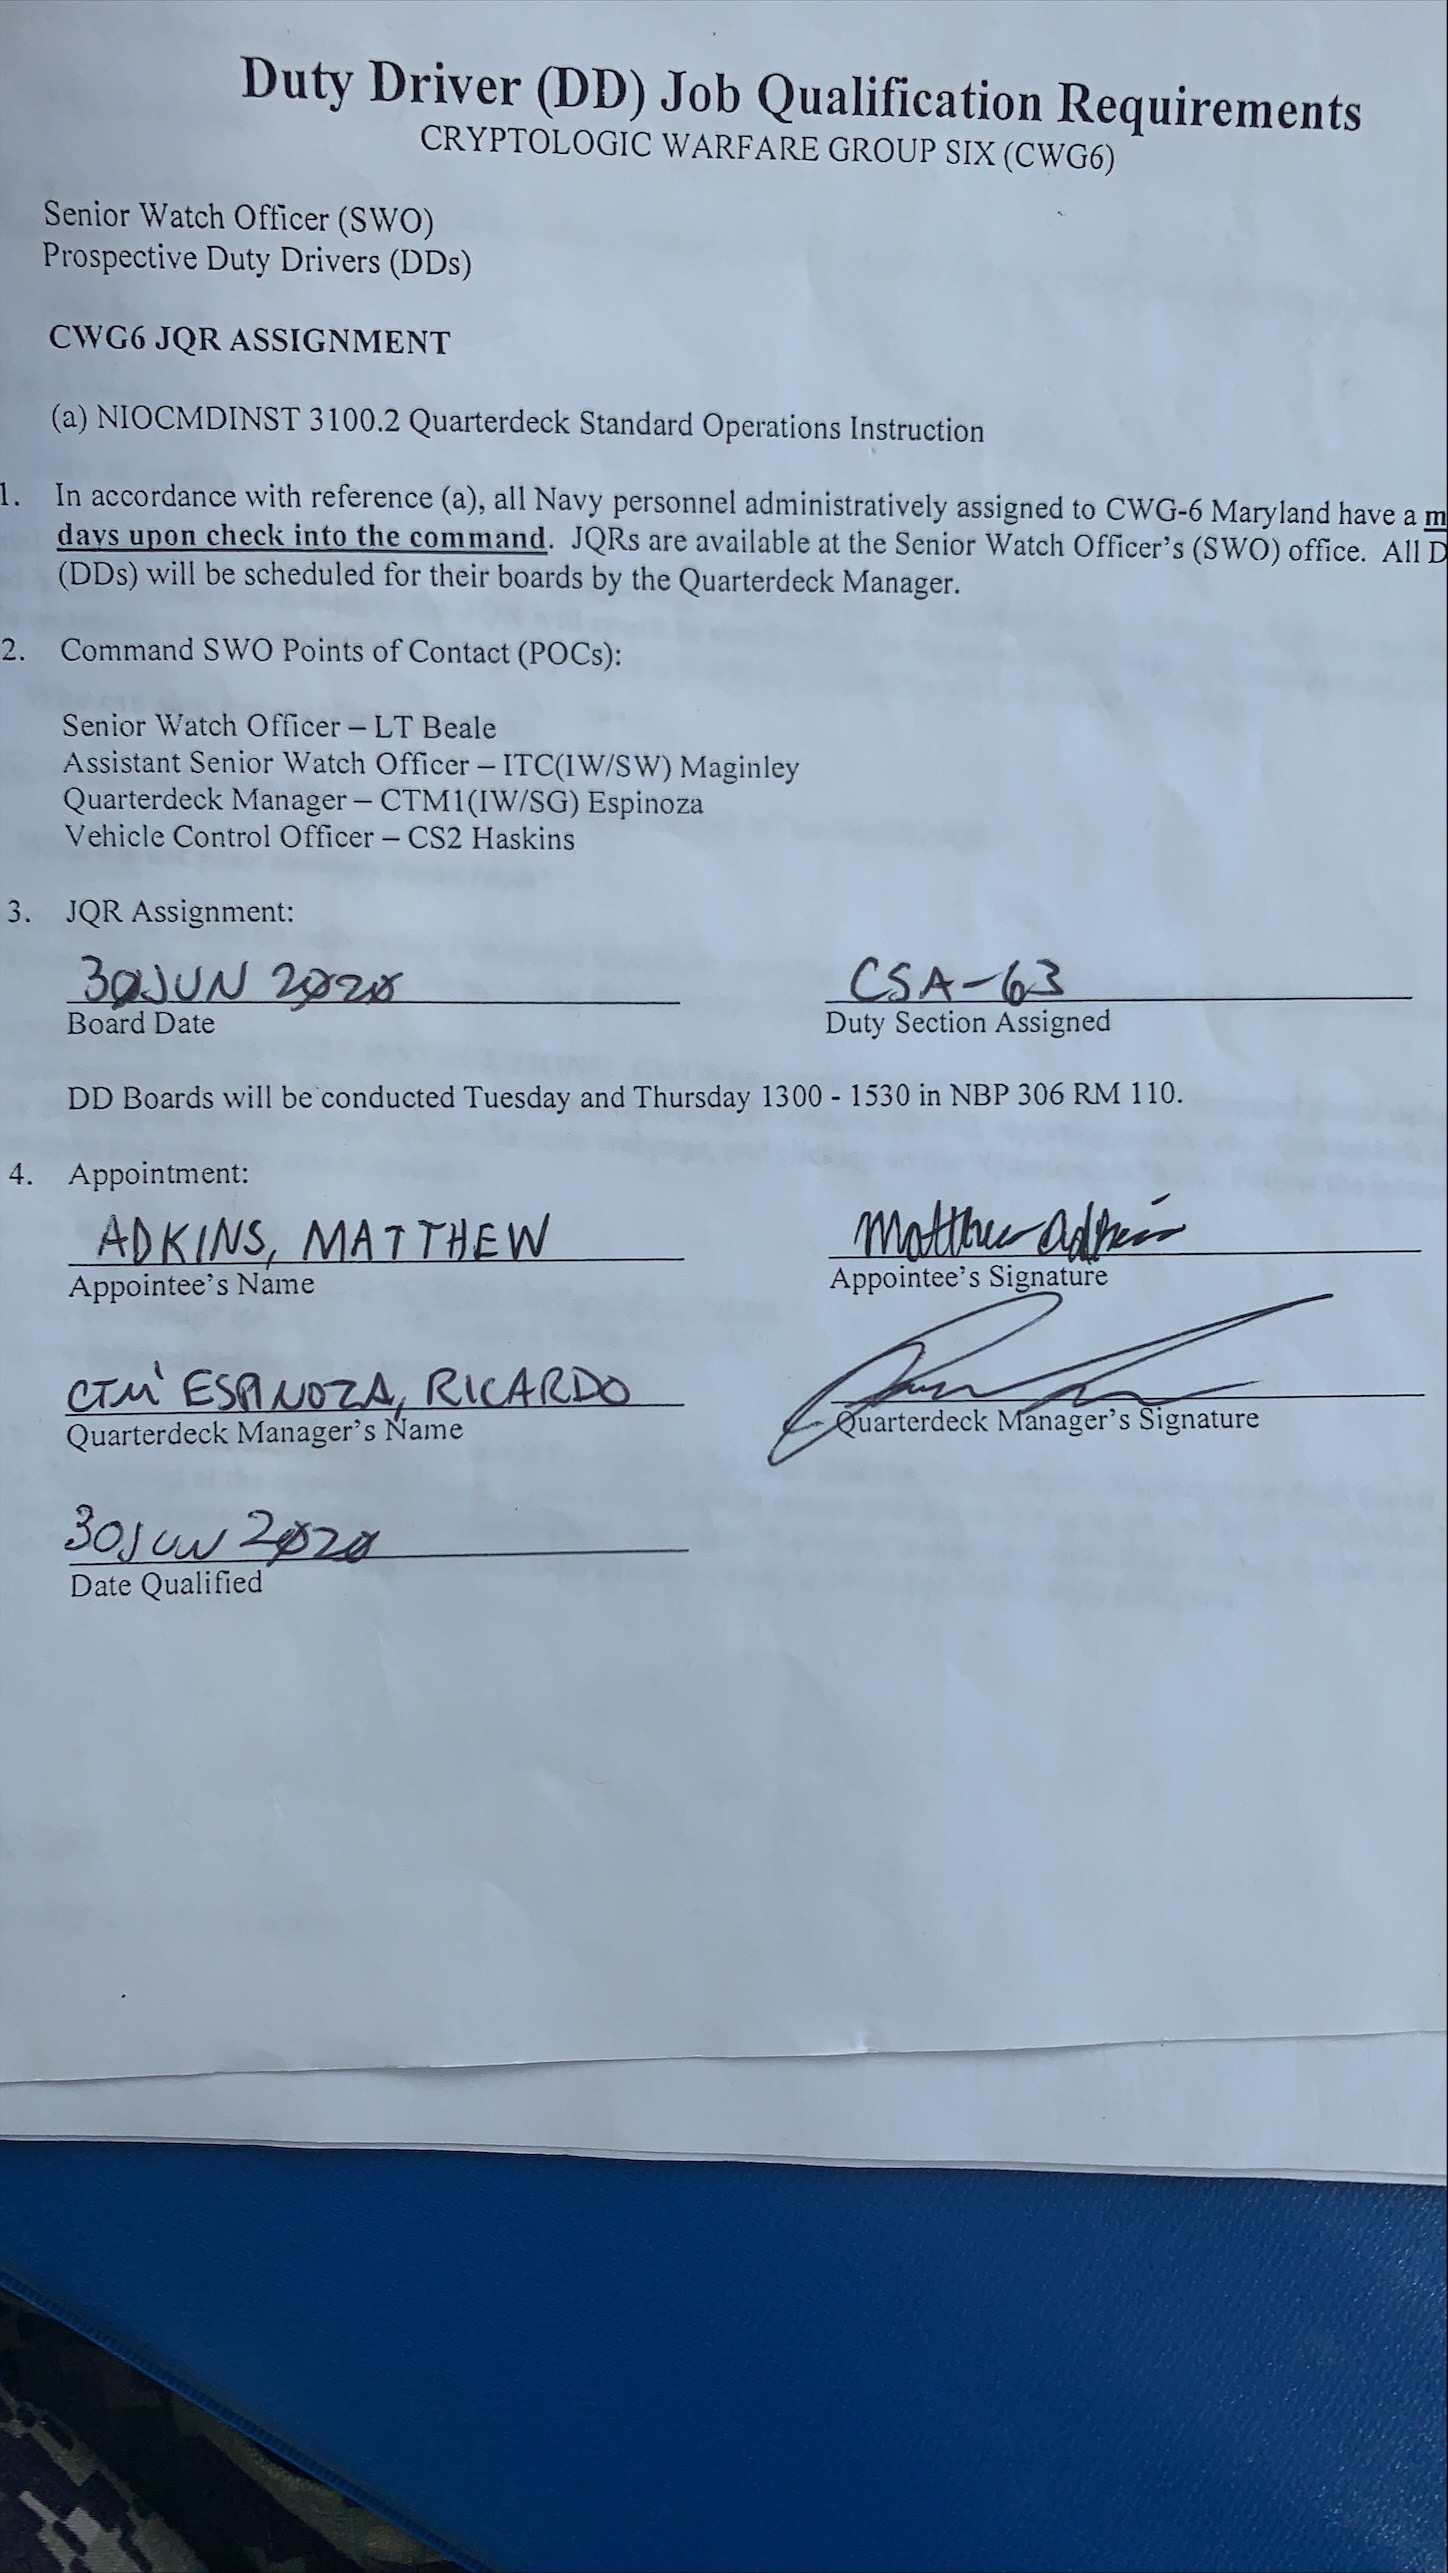 Duty Driver (DD) Job Qualification Requirements
CRYPTOLOGIC WARFARE GROUP SIX (CWG6)
Senior Watch Officer (SWO)
Prospective Duty Drivers (DDs)
CWG6 JQR ASSIGNMENT
(a) NIOCMDINST 3100.2 Quarterdeck Standard Operations Instruction
1. In accordance with reference (a), all Navy personnel administratively assigned to CWG-6 Maryland have a
days upon check into the command. JQRs are available at the Senior Watch Officer's (SWO) office. All
(DDs) will be scheduled for their boards by the Quarterdeck Manager.
2. Command SWO Points of Contact (POCs):
Senior Watch Officer – LT Beale
Assistant Senior Watch Officer – ITC(IW/SW) Maginley
Quarterdeck Manager – CTM1(IW/SG) Espinoza
Vehicle Control Officer – CS2 Haskins
3. JQR Assignment:
30JUN 2020 CSA-63
Board Date Duty Section Assigned
DD Boards will be conducted Tuesday and Thursday 1300 - 1530 in NBP 306 RM 110.
4. Appointment:
ADKINS, MATTHEW Matthew Adkins
Appointee's Name Appointee's Signature
CTM1 ESPINOZA, RICARDO
Quarterdeck Manager's Name Quarterdeck Manager's Signature
30JUN 2020
Date Qualified